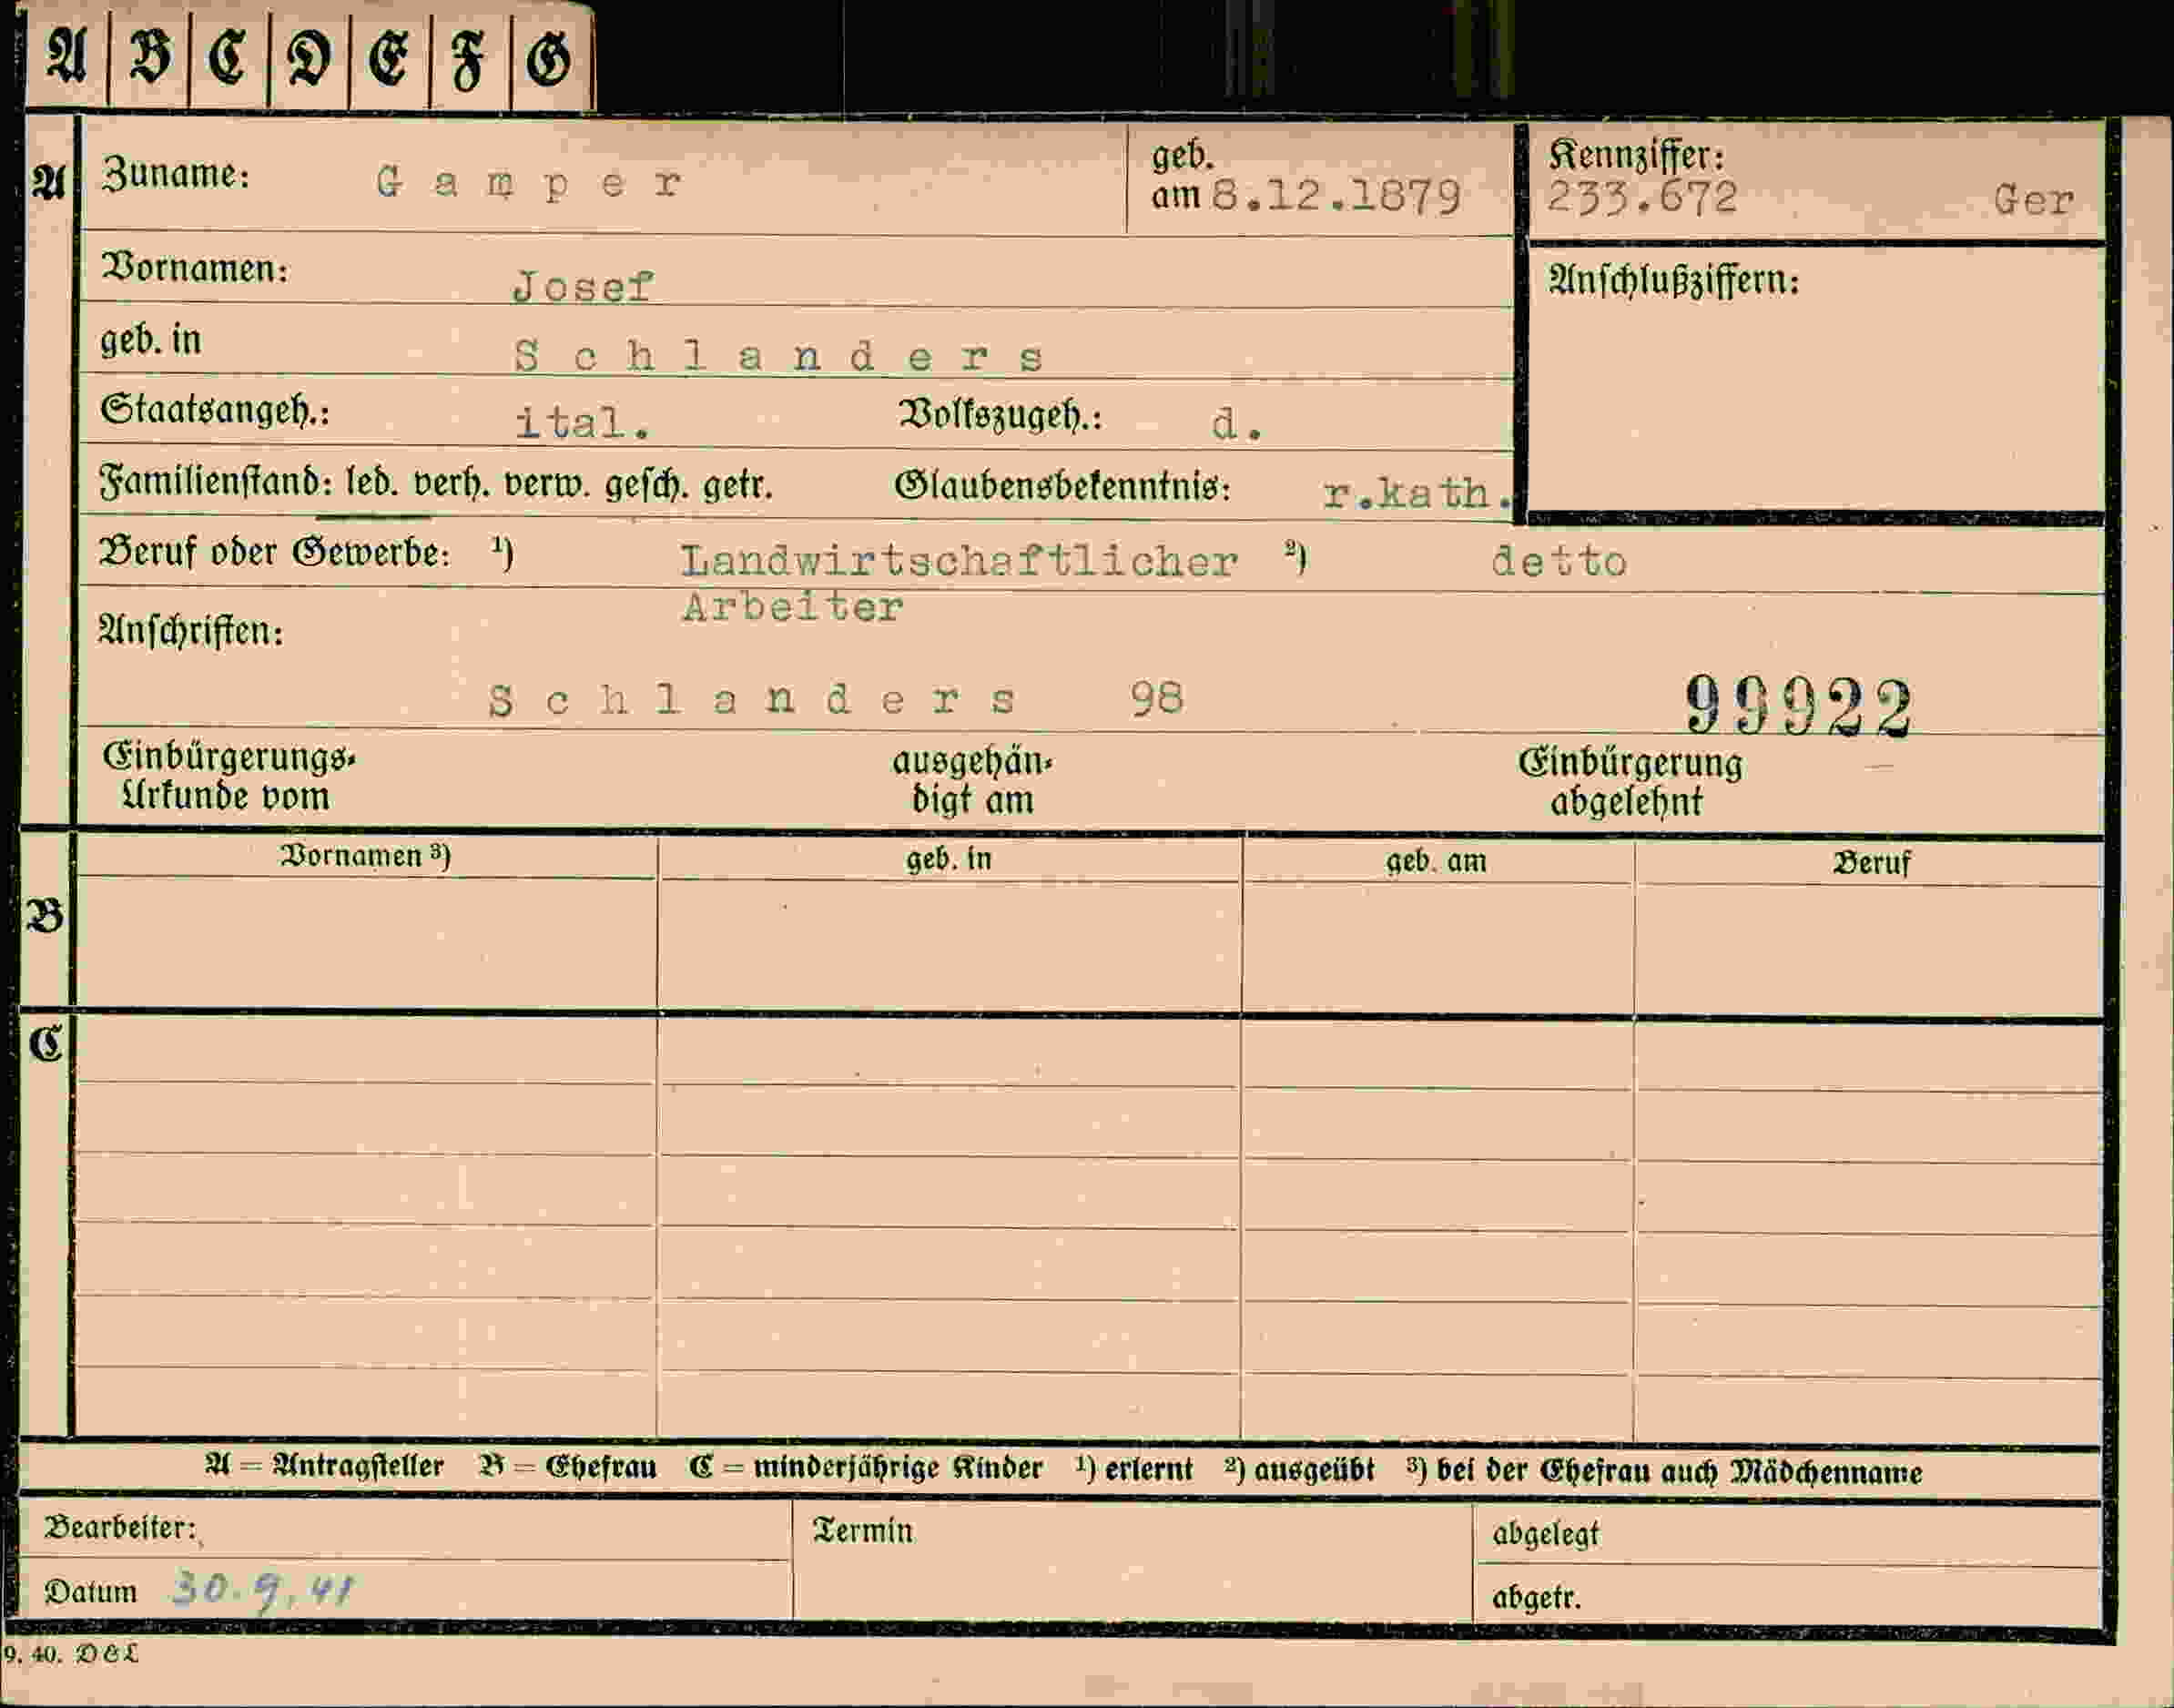 A B C D E F G
A Zuname: Gamper geb. am 8.12.1879 Kennziffer: 233.672 Ger
Vornamen: Josef Anschlußziffern:
geb. in Schlanders
Staatsangeh.: ital. Volkszugeh.: d.
Familienstand: led. verh. verw. gesch. getr. Glaubensbekenntnis: r.kath.
Beruf oder Gewerbe: ¹) Landwirtschaftlicher Arbeiter ²) detto
Anschriften:
Schlanders 98 99922
Einbürgerungs- ausgehän- Einbürgerung
Urkunde vom digt am abgelehnt
Vornamen ³) geb. in geb. am Beruf
B
C
A = Antragsteller B = Ehefrau C = minderjährige Kinder ¹) erlernt ²) ausgeübt ³) bei der Ehefrau auch Mädchenname
Bearbeiter: Termin abgelegt
Datum 30.9.41 abgetr.
9. 40. D & L